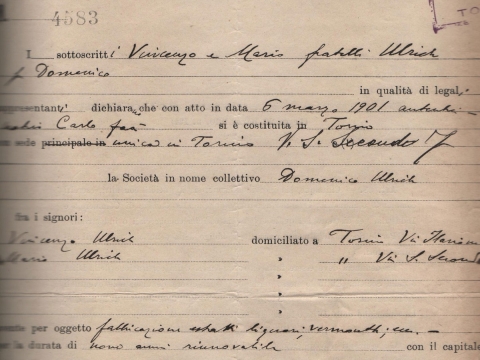 4583
I sottoscritti Vincenzo e Mario fratelli Ulrich
f Domenico
in qualità di legal
presentanti dichiara che con atto in data 6 marzo 1901
Carlo si è costituita in Torino
sede principale in unica in Torino V. S. Secondo 7
la Società in nome collettivo Domenico Ulrich
fra i signori:
Vincenzo Ulrich domiciliato a Torino Via
Mario Ulrich " " Via S. Secondo
"
"
per oggetto fabbricazione estratti liquori, vermouth, ecc. –
per la durata di nove anni rinnovabile con il capitale